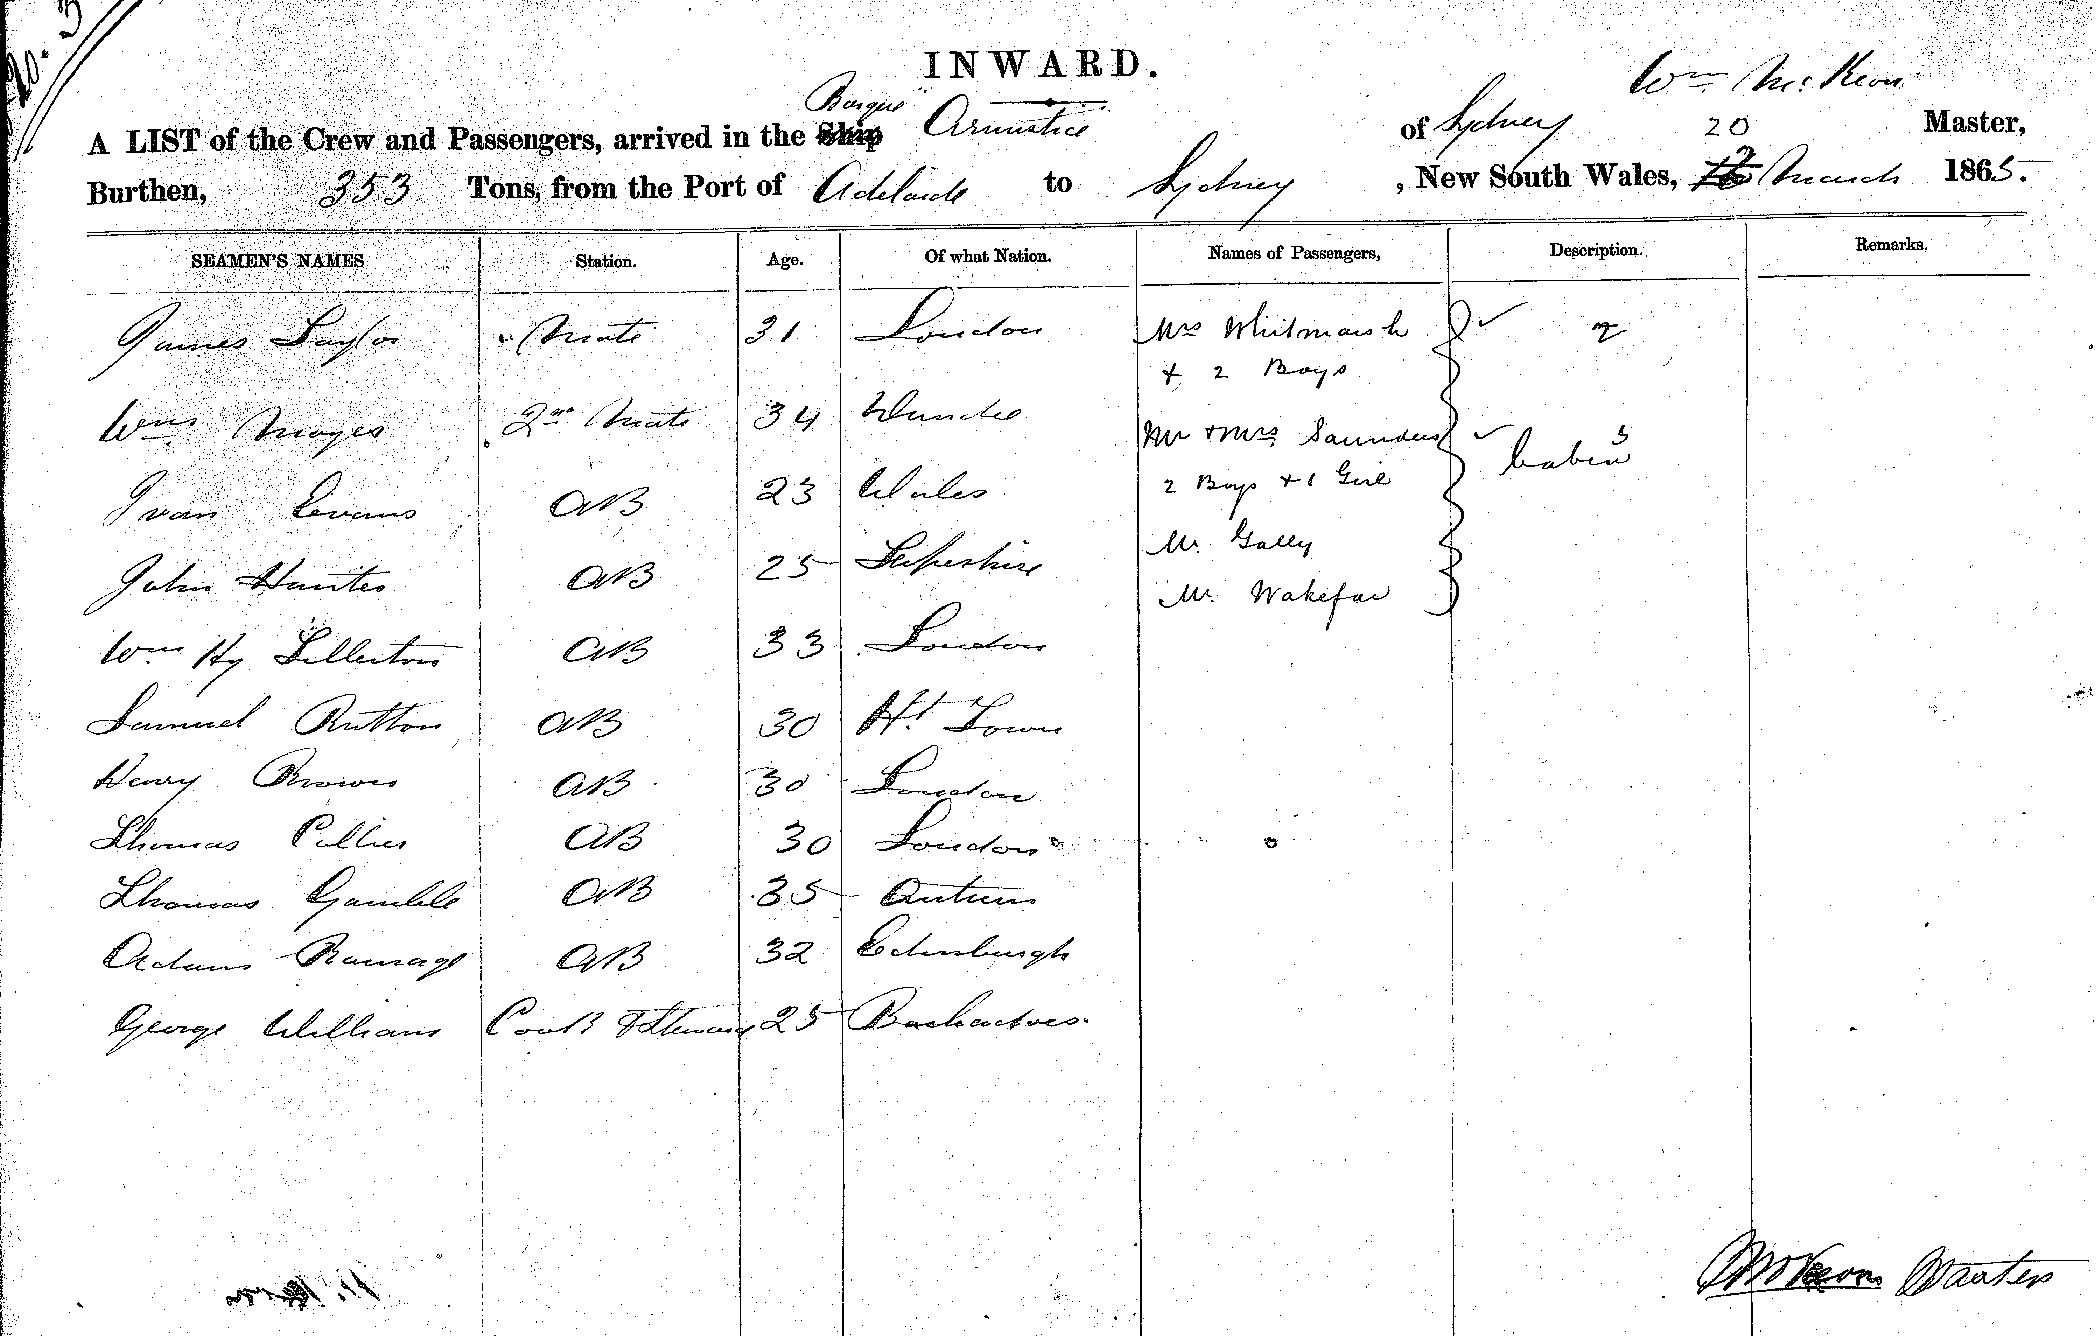 INWARD.
Wm McKeon
Barque
A LIST of the Crew and Passengers, arrived in the Ship Armistice of Sydney 20 Master,
Burthen, 353 Tons, from the Port of Adelaide to Sydney , New South Wales, March 1865.
SEAMEN'S NAMES Station. Age. Of what Nation. Names of Passengers, Description. Remarks.
James Taylor Mate 31 London Mrs Whitmarsh
+ 2 Boys
Wm Moyes 2nd Mate 34 Dundee Mr + Mrs Saunders
Cabin
Ivan Evans AB 23 Wales 2 Boys + 1 Girl
Mr. Gally
John Hunter AB 25 Fifeshire
Mr. Wakefar
Wm Hy Tillerton AB 33 London
Samuel Rutton AB 30 Ht Town
Henry Brown AB 30 London
Thomas Collier AB 30 London
Thomas Gamble AB 35 Antrim
Adam Ramage AB 32 Edinburgh
George Williams Cook & Steward 25 Barbadoes.
McKeon Master